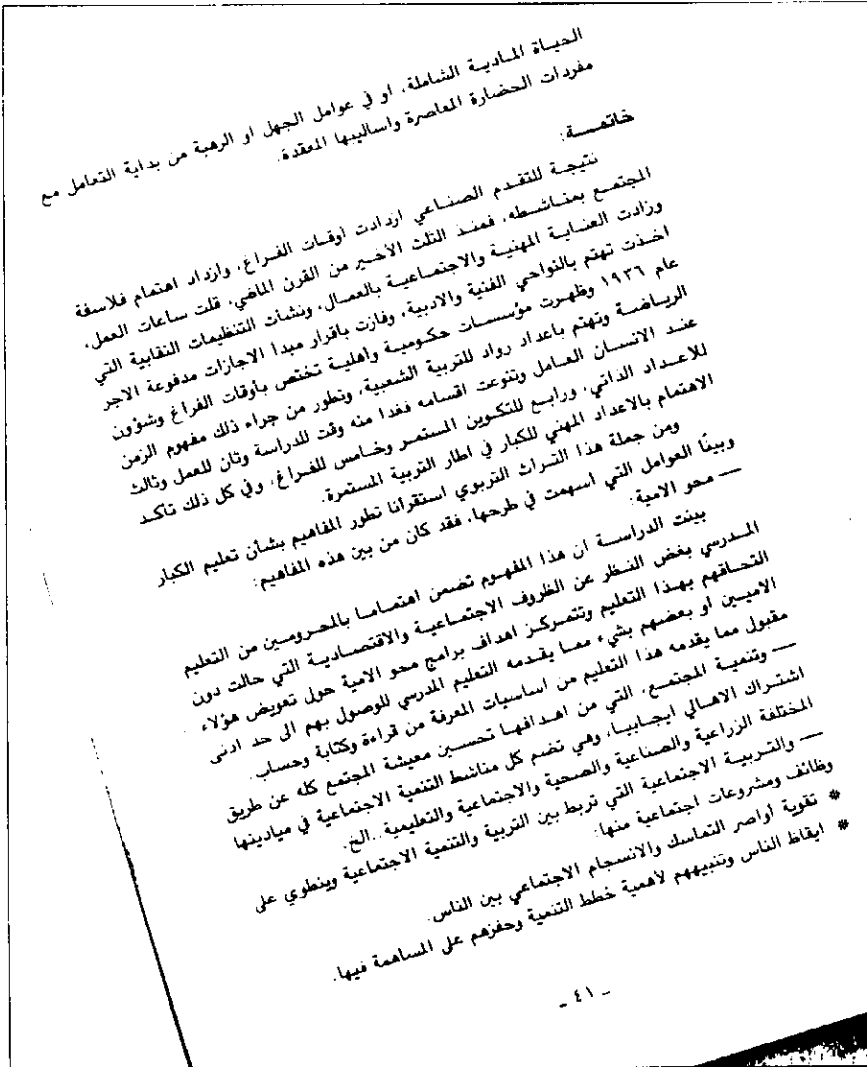 الحياة المادية الشاملة، او في عوامل الجهل او الرهبة من بداية التعامل مع
مفردات الحضارة المعاصرة واساليبها المعقدة.
خاتمة:
نتيجة للتقدم الصناعي ازدادت اوقات الفراغ، وازداد اهتمام فلاسفة
المجتمع بمناشطه، فمنذ الثلث الأخير من القرن الماضي، قلت ساعات العمل،
وزادت العناية المهنية والاجتماعية بالعمال، ونشأت التنظيمات النقابية التي
اخذت تهتم بالنواحي الفنية والادبية، وفازت باقرار مبدا الاجازات مدفوعة الاجر
عام ١٩٣٦ وظهرت مؤسسات حكومية وأهلية تختص بأوقات الفراغ وشؤون
الرياضة وتهتم باعداد رواد للتربية الشعبية، وتطور من جراء ذلك مفهوم الزمن
عند الانسان العامل وتنوعت اقسامه فغدا منه وقت للدراسة وثان للعمل وثالث
للاعداد الذاتي، ورابع للتكوين المستمر وخامس للفراغ، وفي كل ذلك تاكد
الاهتمام بالاعداد المهني للكبار في اطار التربية المستمرة.
ومن جملة هذا التراث التربوي استقرانا تطور المفاهيم بشأن تعليم الكبار
وبينّا العوامل التي اسهمت في طرحها، فقد كان من بين هذه المفاهيم:
— محو الامية:
بينت الدراسة ان هذا المفهوم تضمن اهتماما بالمحرومين من التعليم
المدرسي بغض النظر عن الظروف الاجتماعية والاقتصادية التي حالت دون
التحاقهم بهذا التعليم وتتمركز اهداف برامج محو الامية حول تعويض هؤلاء
الاميين أو بعضهم بشيء مما يقدمه التعليم المدرسي للوصول بهم الى حد ادنى
مقبول مما يقدمه هذا التعليم من اساسيات المعرفة من قراءة وكتابة وحساب.
— وتنمية المجتمع، التي من اهدافها تحسين معيشة المجتمع كله عن طريق
اشتراك الاهالي ايجابيا، وهي تضم كل مناشط التنمية الاجتماعية في ميادينها
المختلفة الزراعية والصناعية والصحية والاجتماعية والتعليمية..الخ.
— والتربية الاجتماعية التي تربط بين التربية والتنمية الاجتماعية وينطوي على
وظائف ومشروعات اجتماعية منها:
* تقوية أواصر التماسك والانسجام الاجتماعي بين الناس.
* ايقاظ الناس وتنبيههم لأهمية خطط التنمية وحفزهم على المساهمة فيها.
- ٤١ -